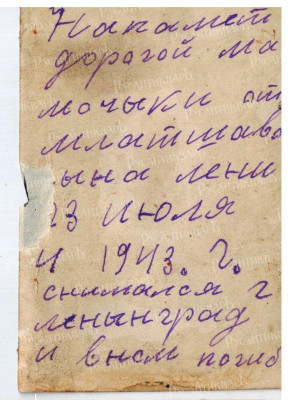 Напамет
дорогой ма
мочьки от
млатшава
ына лени
23 июля
и 1943. г.
снимался г
ленынград
и внем погиб